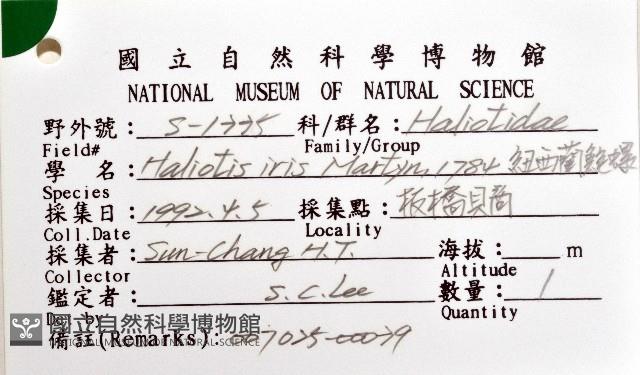 國立自然科學博物館
NATIONAL MUSEUM OF NATURAL SCIENCE
野外號： S-1775 科/群名： Haliotidae
Field# Family/Group
學 名： Haliotis iris Martyn, 1784 紐西蘭鮑螺
Species
採集日： 1992.4.5 採集點： 板橋貝商
Coll.Date Locality
採集者： Sun-Chang H.T. 海拔： m
Collector Altitude
鑑定者： S.C.Lee 數量： 1
Quantity
國立自然科學博物館
NATIONAL MUSEUM OF NATURAL SCIENCE
備註(Remarks): 007025-00079